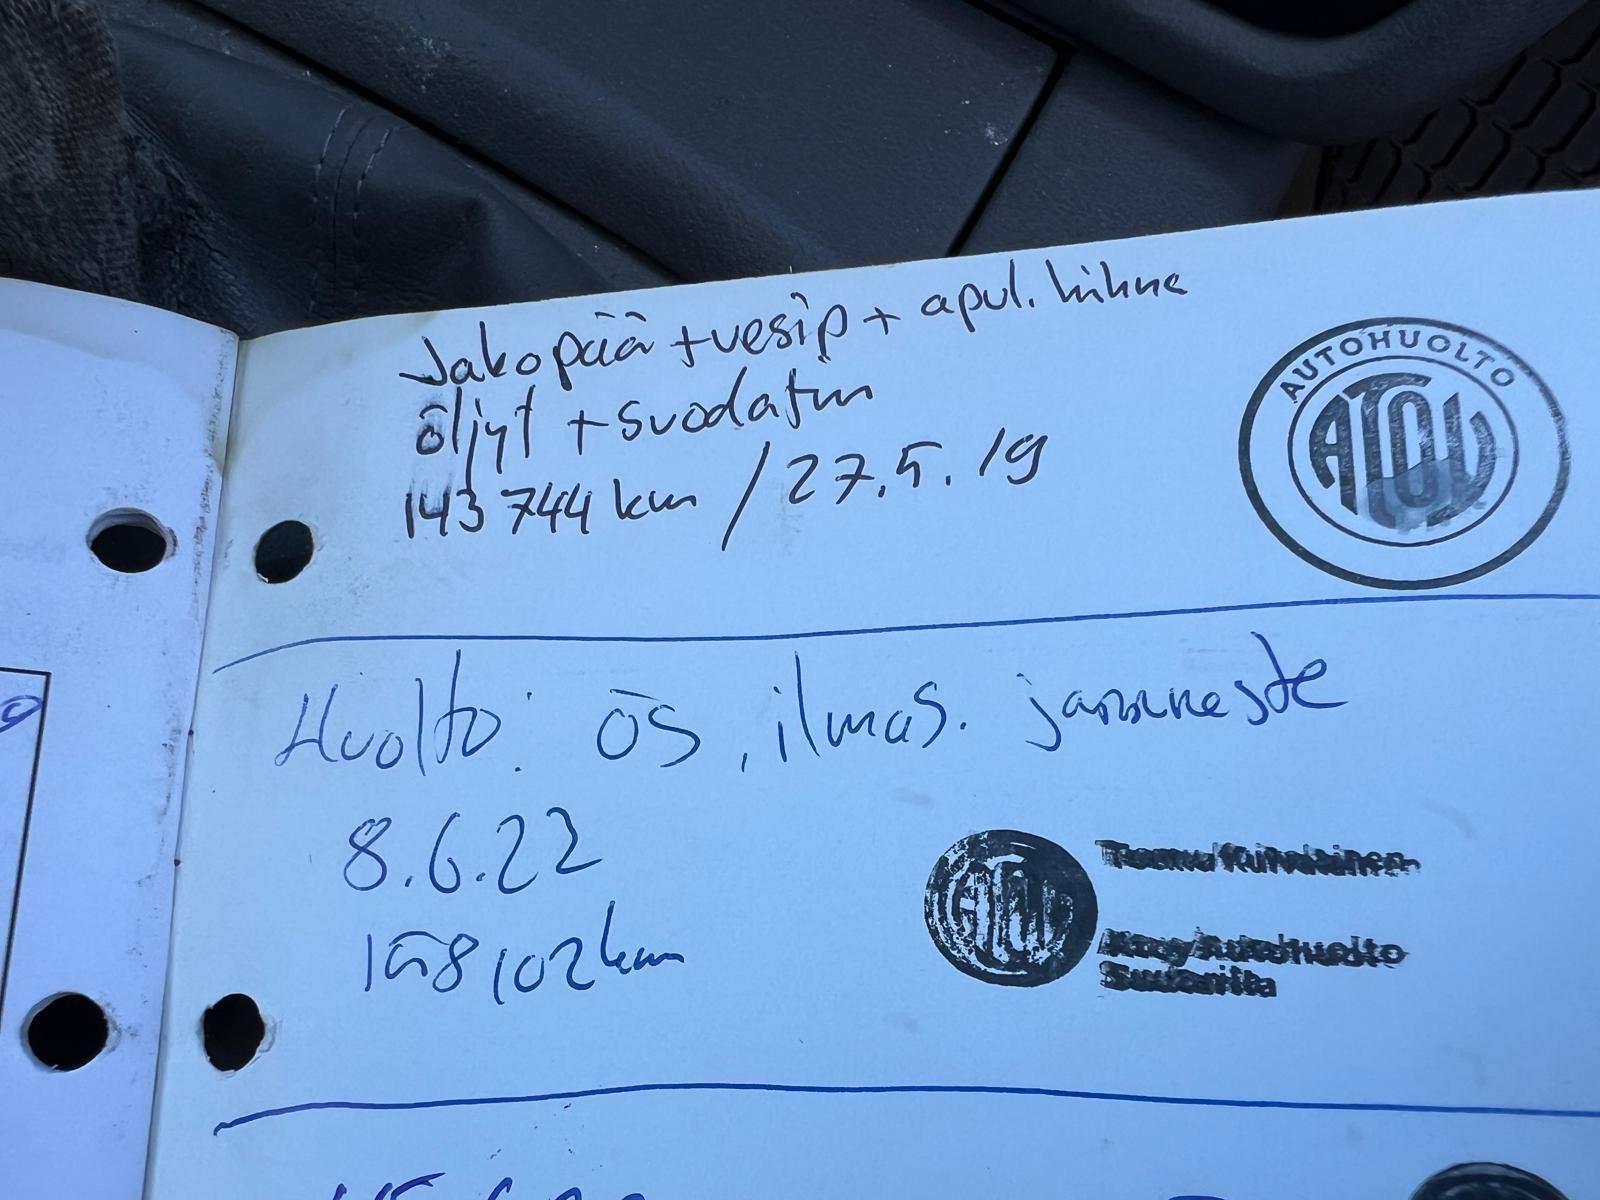 Jakopää + vesip + apul. hihna
öljyt + suodatin
143 744 km / 27.5.19
AUTOHUOLTO
ATOY
Huolto: ös, ilmas. jarruneste
8.6.22
158102 km
ATOY
Autohuolto